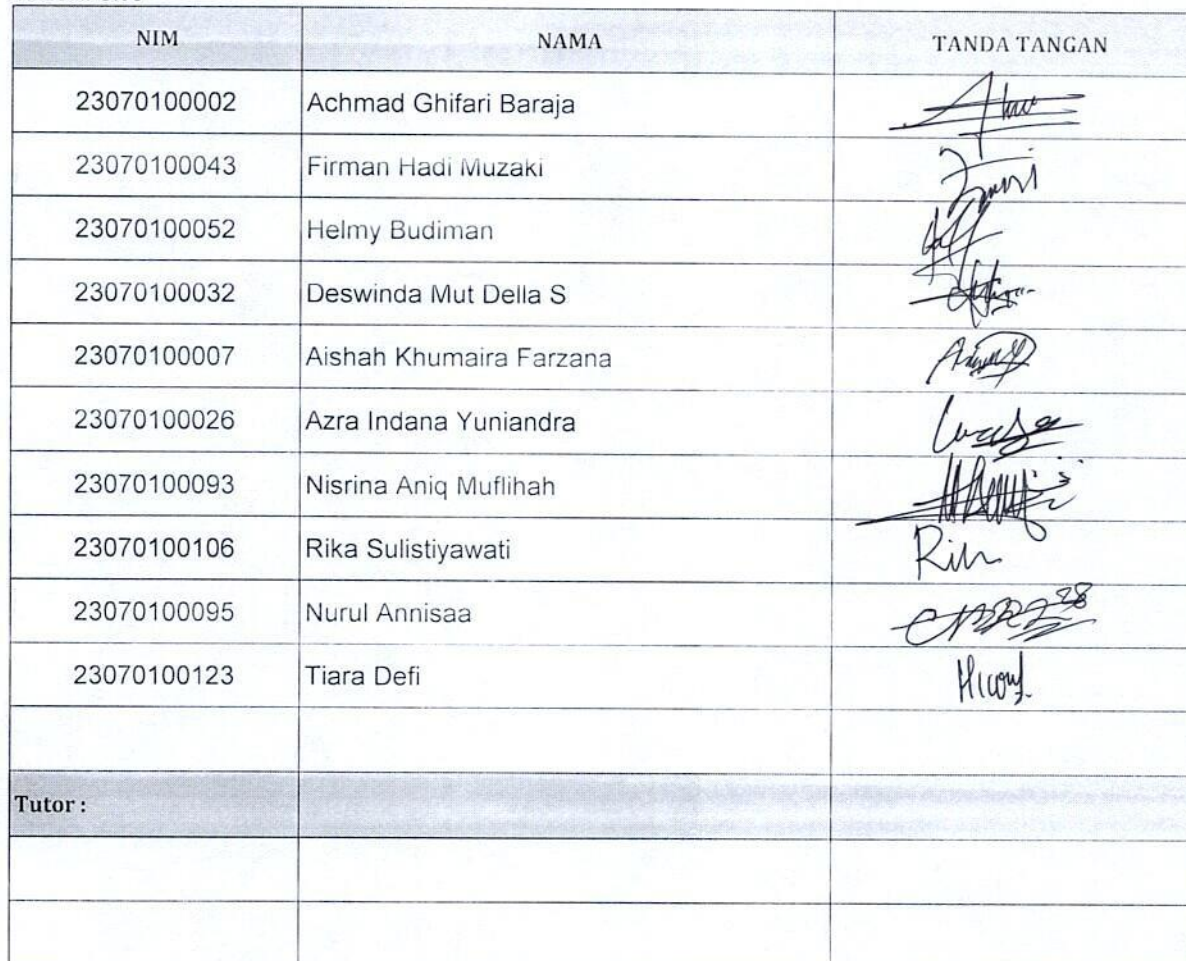 NIM NAMA TANDA TANGAN
23070100002 Achmad Ghifari Baraja
23070100043 Firman Hadi Muzaki
23070100052 Helmy Budiman
23070100032 Deswinda Mut Della S
23070100007 Aishah Khumaira Farzana
23070100026 Azra Indana Yuniandra
23070100093 Nisrina Aniq Muflihah
23070100106 Rika Sulistiyawati
23070100095 Nurul Annisaa
23070100123 Tiara Defi
Tutor :